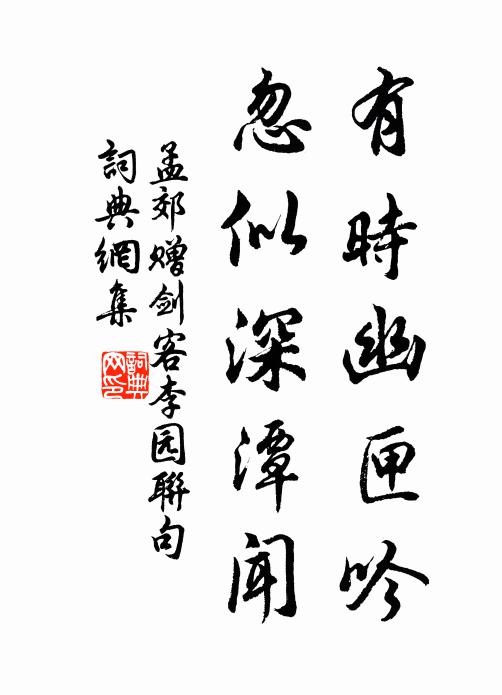 有時幽匣吟
忽似深潭聞
孟郊赠剑客李园聯句
詞典網集
詞典
网印